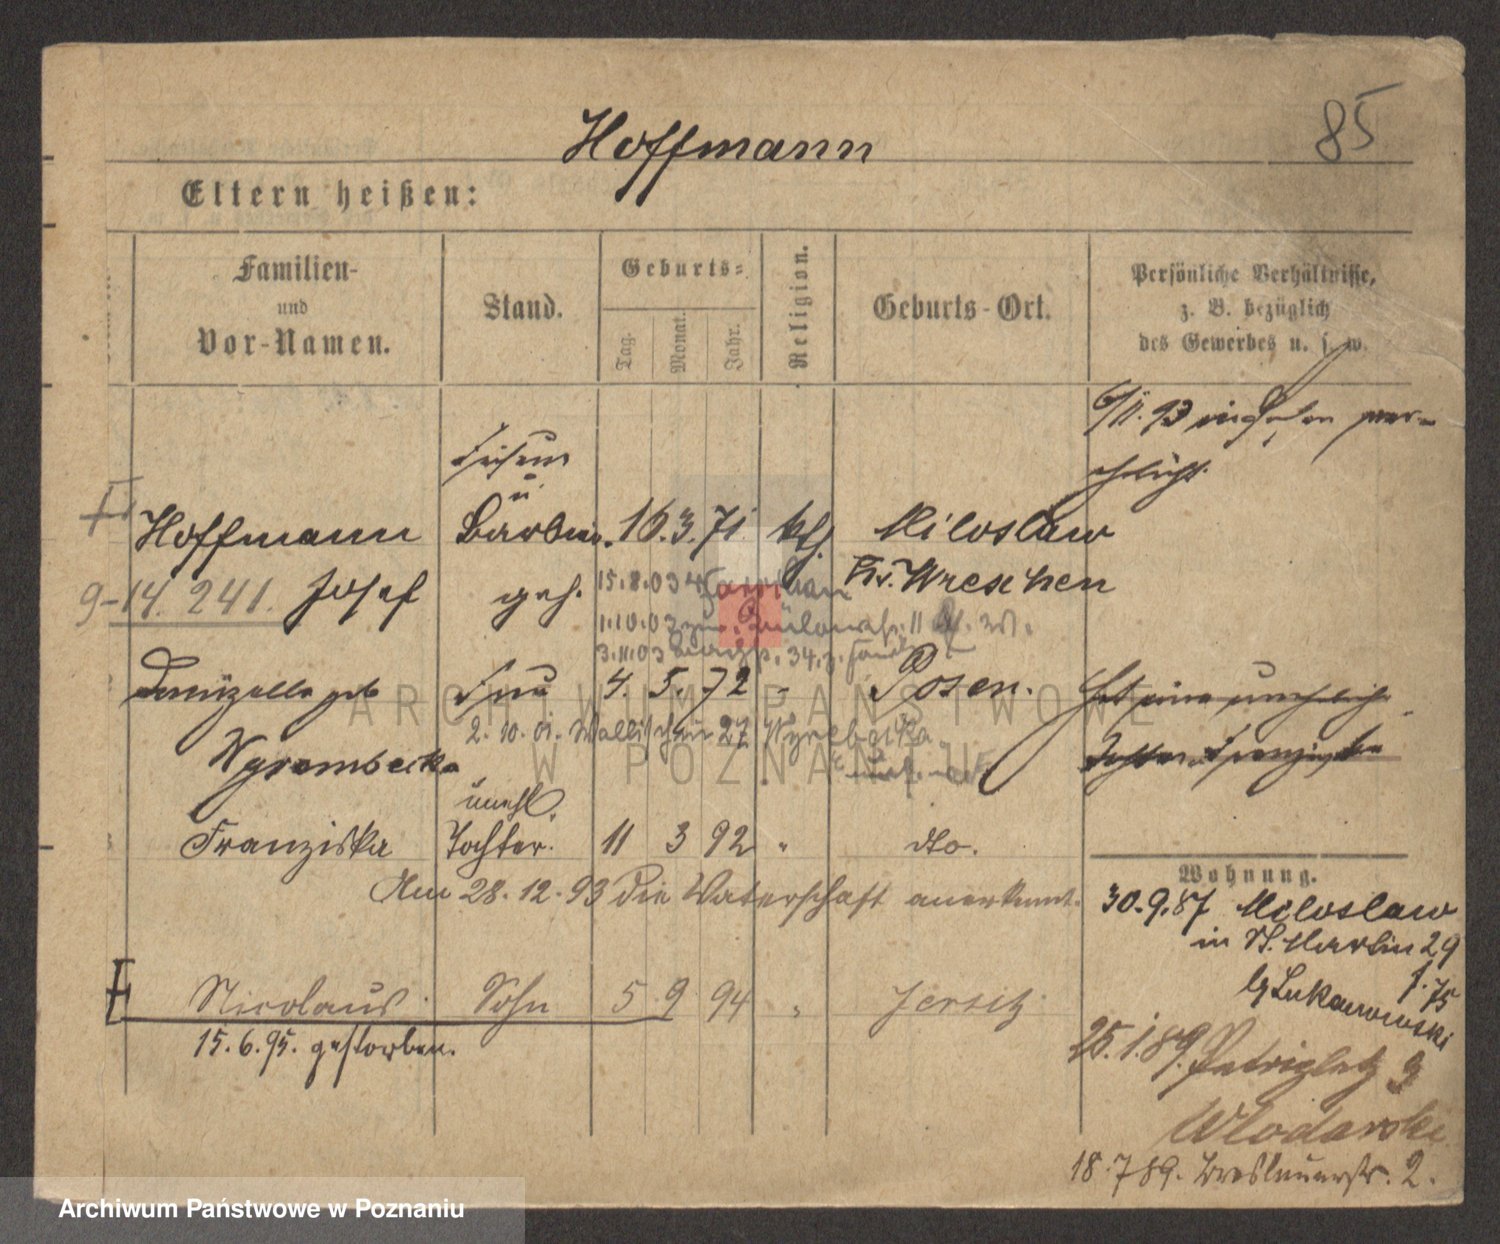 Hoffmann
85
Eltern heißen:
Familien-
und
Vor-Namen.
Stand.
Geburts-
Tag.
Monat.
Jahr.
Religion.
Geburts-Ort.
Persönliche Verhältnisse,
z. B. bezüglich
des Gewerbes u. s. w.
6/11.93
Friseur
u.
Hoffmann Barbier. 16. 3. 71 kth. Miloslaw
9-14. 241. Josef geh. 15.8.03 Kr. Wreschen
1.10.03 11
3.11.03 34
geb Frau 4. 5. 72 - Posen. Hat eine unehelich
2. 10. 01. Wallischei 27
Tochter Franziska
unehl.
Franziska Tochter. 11 3 92 " dto.
Am 28.12.93 die Vaterschaft anerkannt.
Wohnung.
30.9.87 Miloslaw
in St. Martin 29
b/ Lukanowski
f. 75
Nicolaus Sohn 5 9 94 " Jersitz
15.6.95. gestorben.
25.1.89. Petriplatz 3
Wlodarski
18.7 89. Breslauerstr. 2.
ARCHIWUM PAŃSTWOWE
W POZNANIU
Archiwum Państwowe w Poznaniu